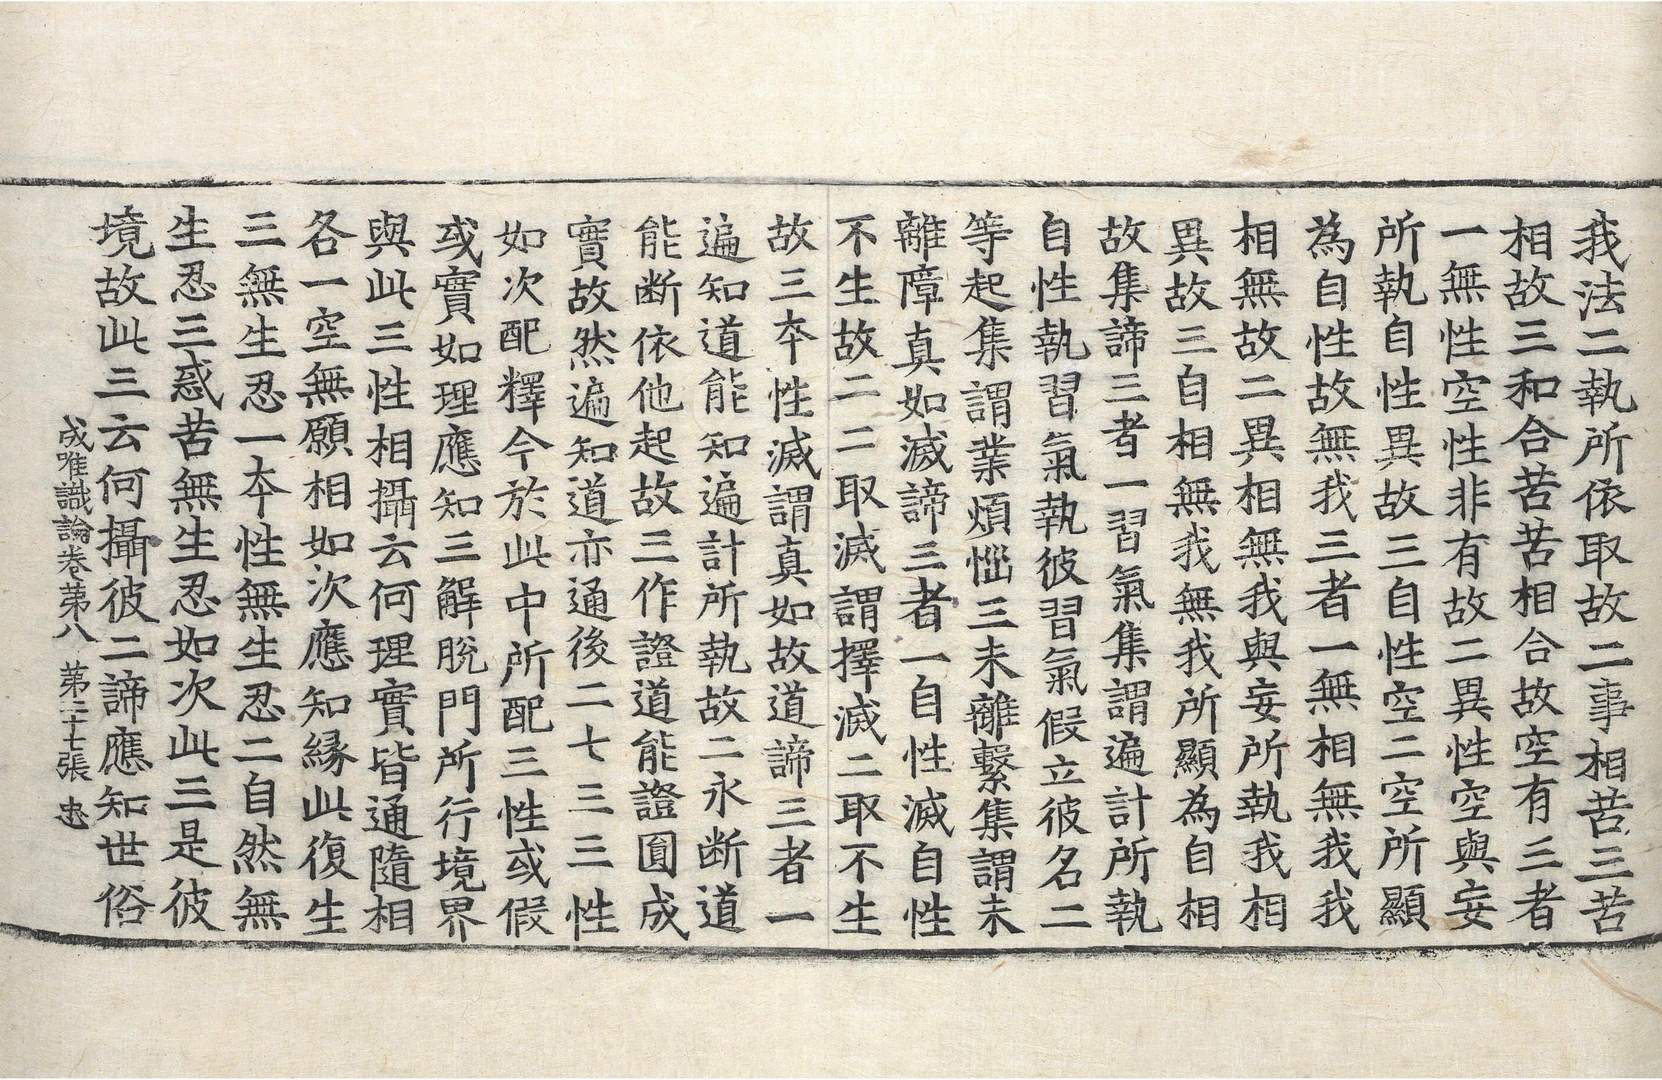 我法二執所依取故二事相苦三苦
相故三和合苦苦相合故空有三者
一無性空性非有故二異性空與妄
所執自性異故三自性空二空所顯
為自性故無我三者一無相無我我
相無故二異相無我與妄所執我相
異故三自相無我無我所顯為自相
故集諦三者一習氣集謂遍計所執
自性執習氣執彼習氣假立彼名二
等起集謂業煩惱三未離繫集謂未
離障真如滅諦三者一自性滅自性
不生故二二取滅謂擇滅二取不生
故三本性滅謂真如故道諦三者一
遍知道能知遍計所執故二永斷道
能斷依他起故三作證道能證圓成
實故然遍知道亦通後二七三三性
如次配釋今於此中所配三性或假
或實如理應知三解脫門所行境界
與此三性相攝云何理實皆通隨相
各一空無願相如次應知緣此復生
三無生忍一本性無生忍二自然無
生忍三惑苦無生忍如次此三是彼
境故此三云何攝彼二諦應知世俗
成唯識論卷第八 第二十張 忠